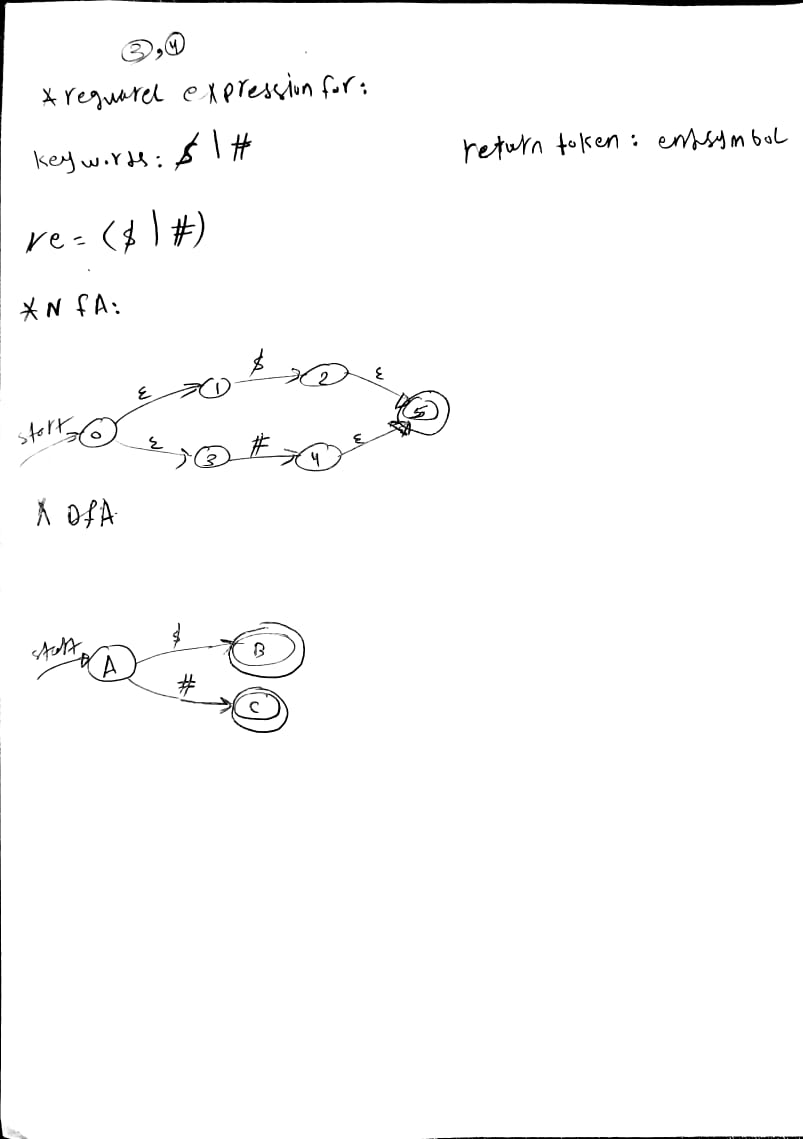 ③,④
* reguarel expression for:
keywords: $ | #
return token: endsymbol
re = ($ | #)
* NFA:
start 0 ε 1 $ 2 ε 5
ε 3 # 4 ε
* DFA
start A $ B
# C